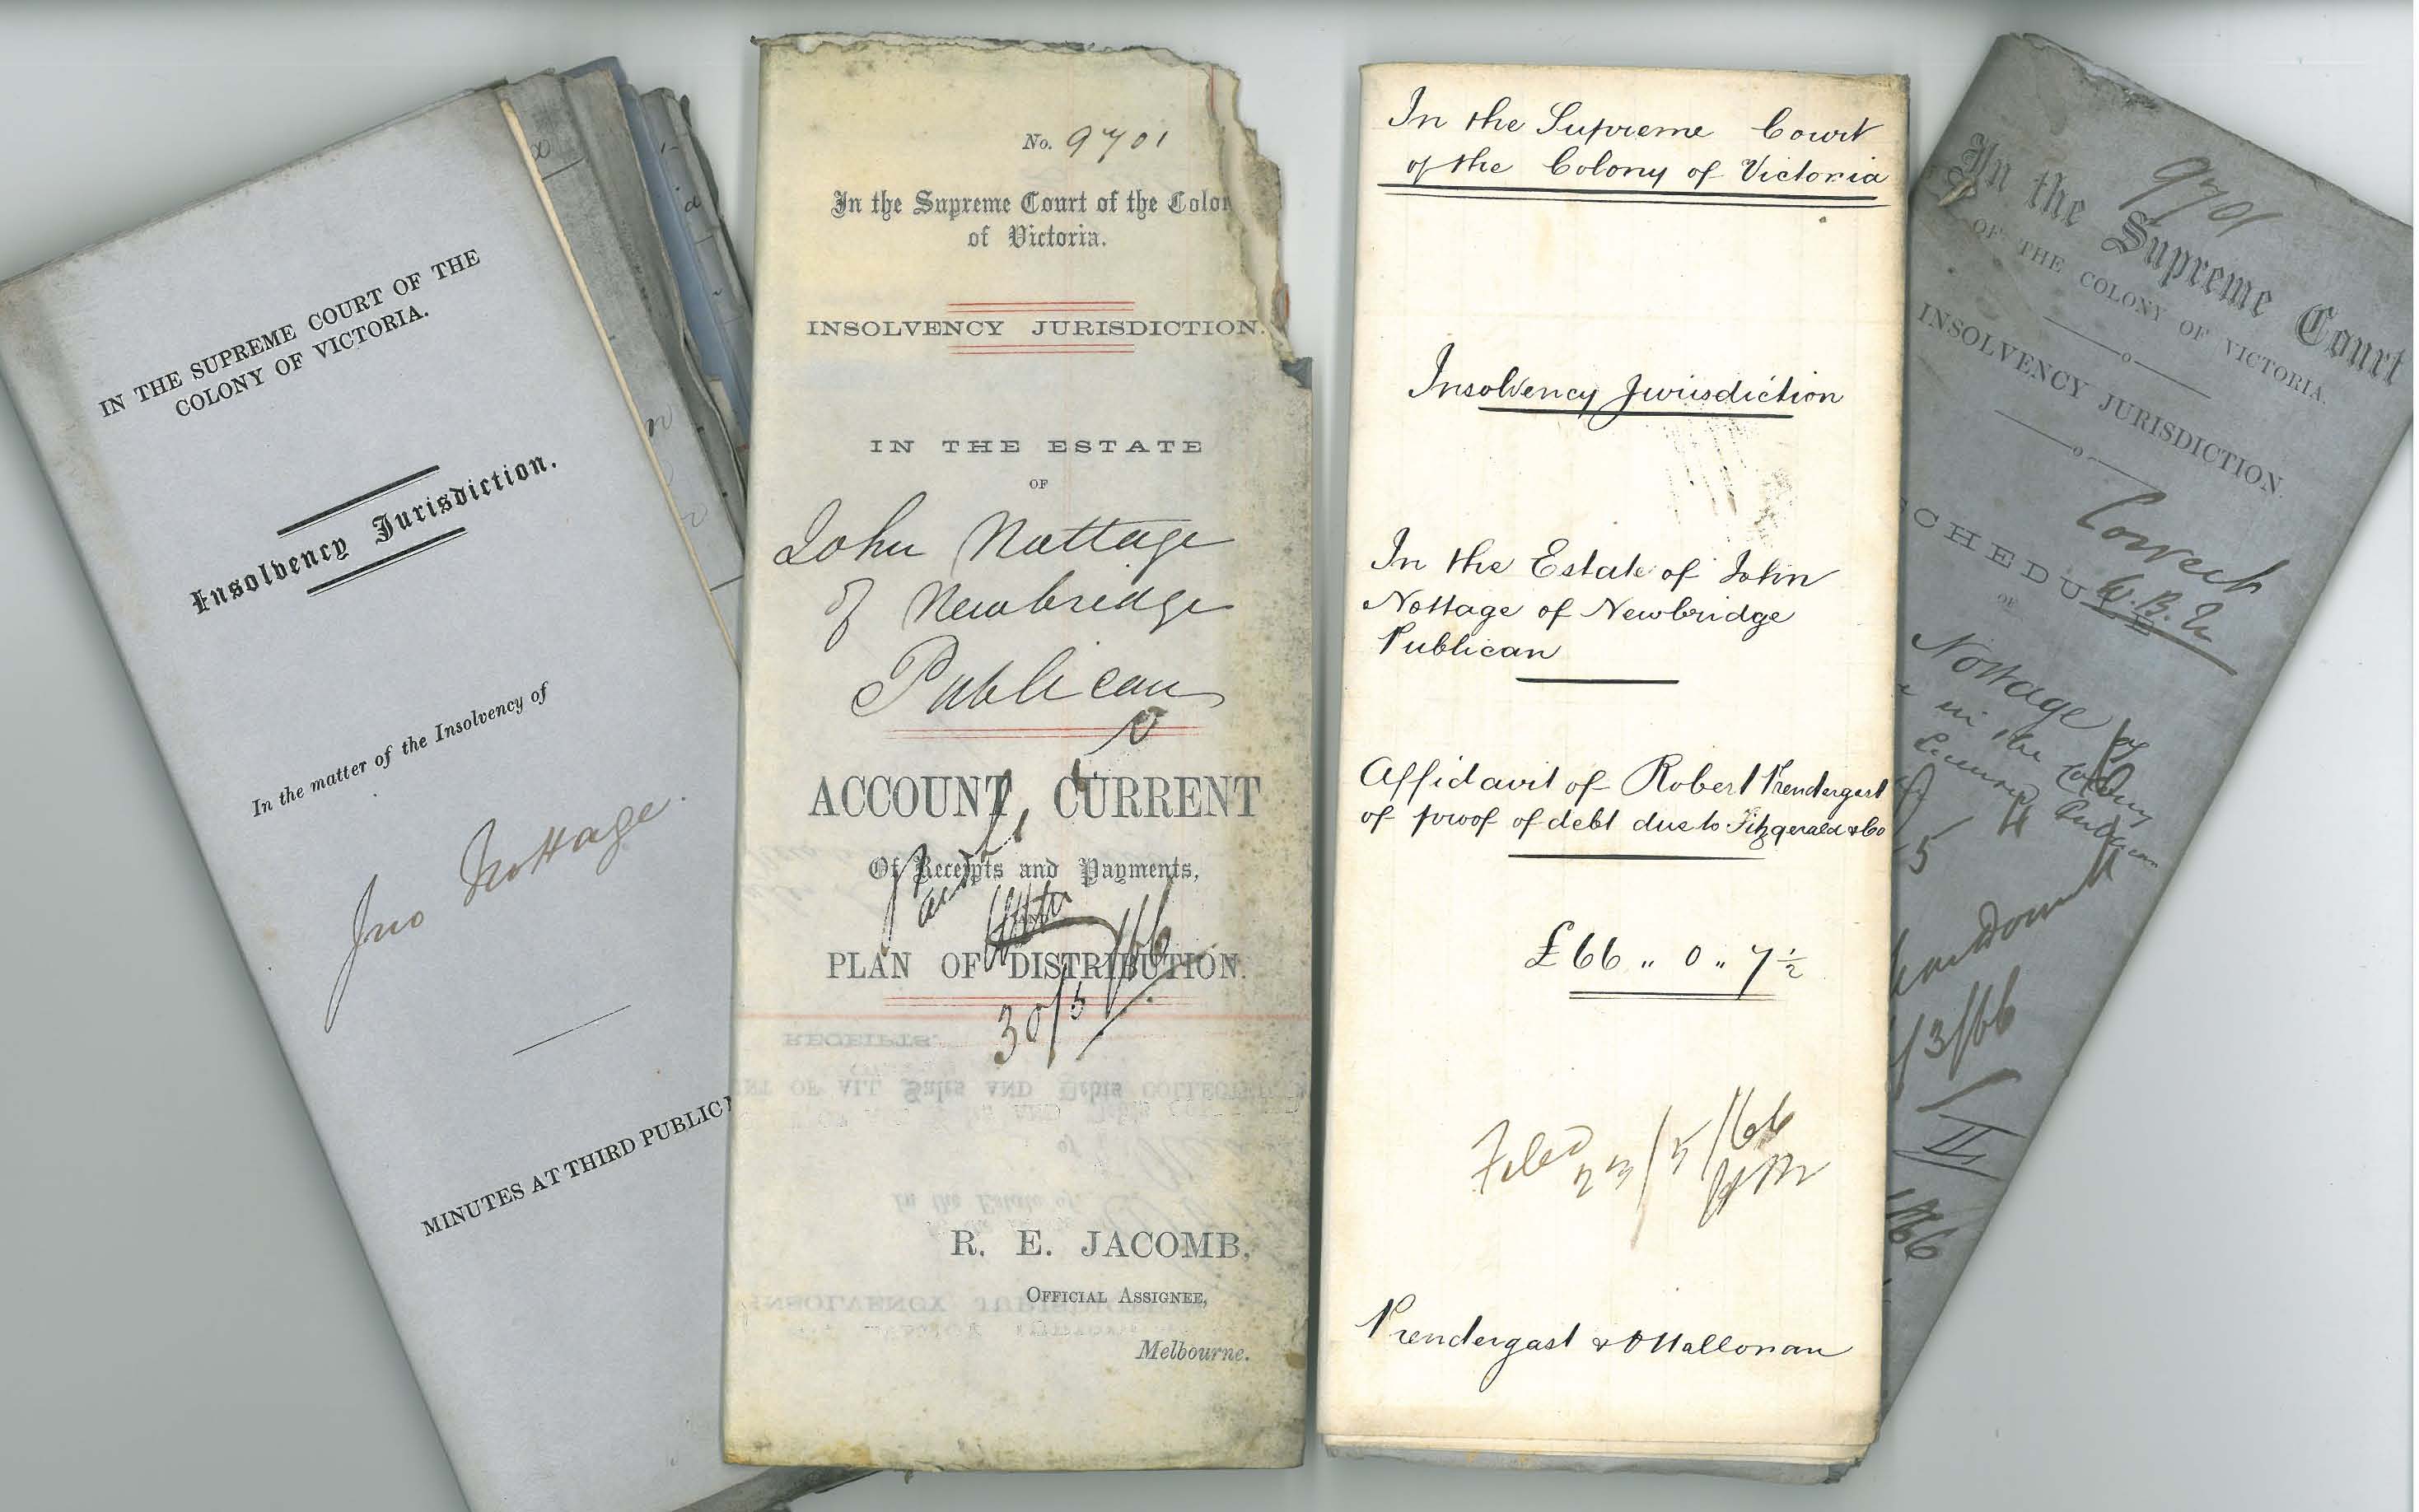 IN THE SUPREME COURT OF THE
COLONY OF VICTORIA.
Insolvency Jurisdiction.
In the matter of the Insolvency of
Jno Nottage.
MINUTES AT THIRD PUBLIC
No. 9701
In the Supreme Court of the Colon
of Victoria.
INSOLVENCY JURISDICTION.
IN THE ESTATE
OF
John Nottage
of Newbridge
Publican
ACCOUNT CURRENT
Of Receipts and Payments,
AND
PLAN OF DISTRIBUTION.
30/5/66
R. E. JACOMB,
OFFICIAL ASSIGNEE,
Melbourne.
In the Supreme Court
of the Colony of Victoria
Insolvency Jurisdiction
In the Estate of John
Nottage of Newbridge
Publican
Affidavit of Robert Prendergast
of proof of debt due to Fitzgerald & Co
£66 " 0 " 7 ½
Filed
23/5/66
Prendergast & OHallonan
9701
In the Supreme Court
OF THE COLONY OF VICTORIA.
INSOLVENCY JURISDICTION.
CHEDULE
OF
Nottage of
in the Colony
Licensed Publican
5
/3/66
II
1866